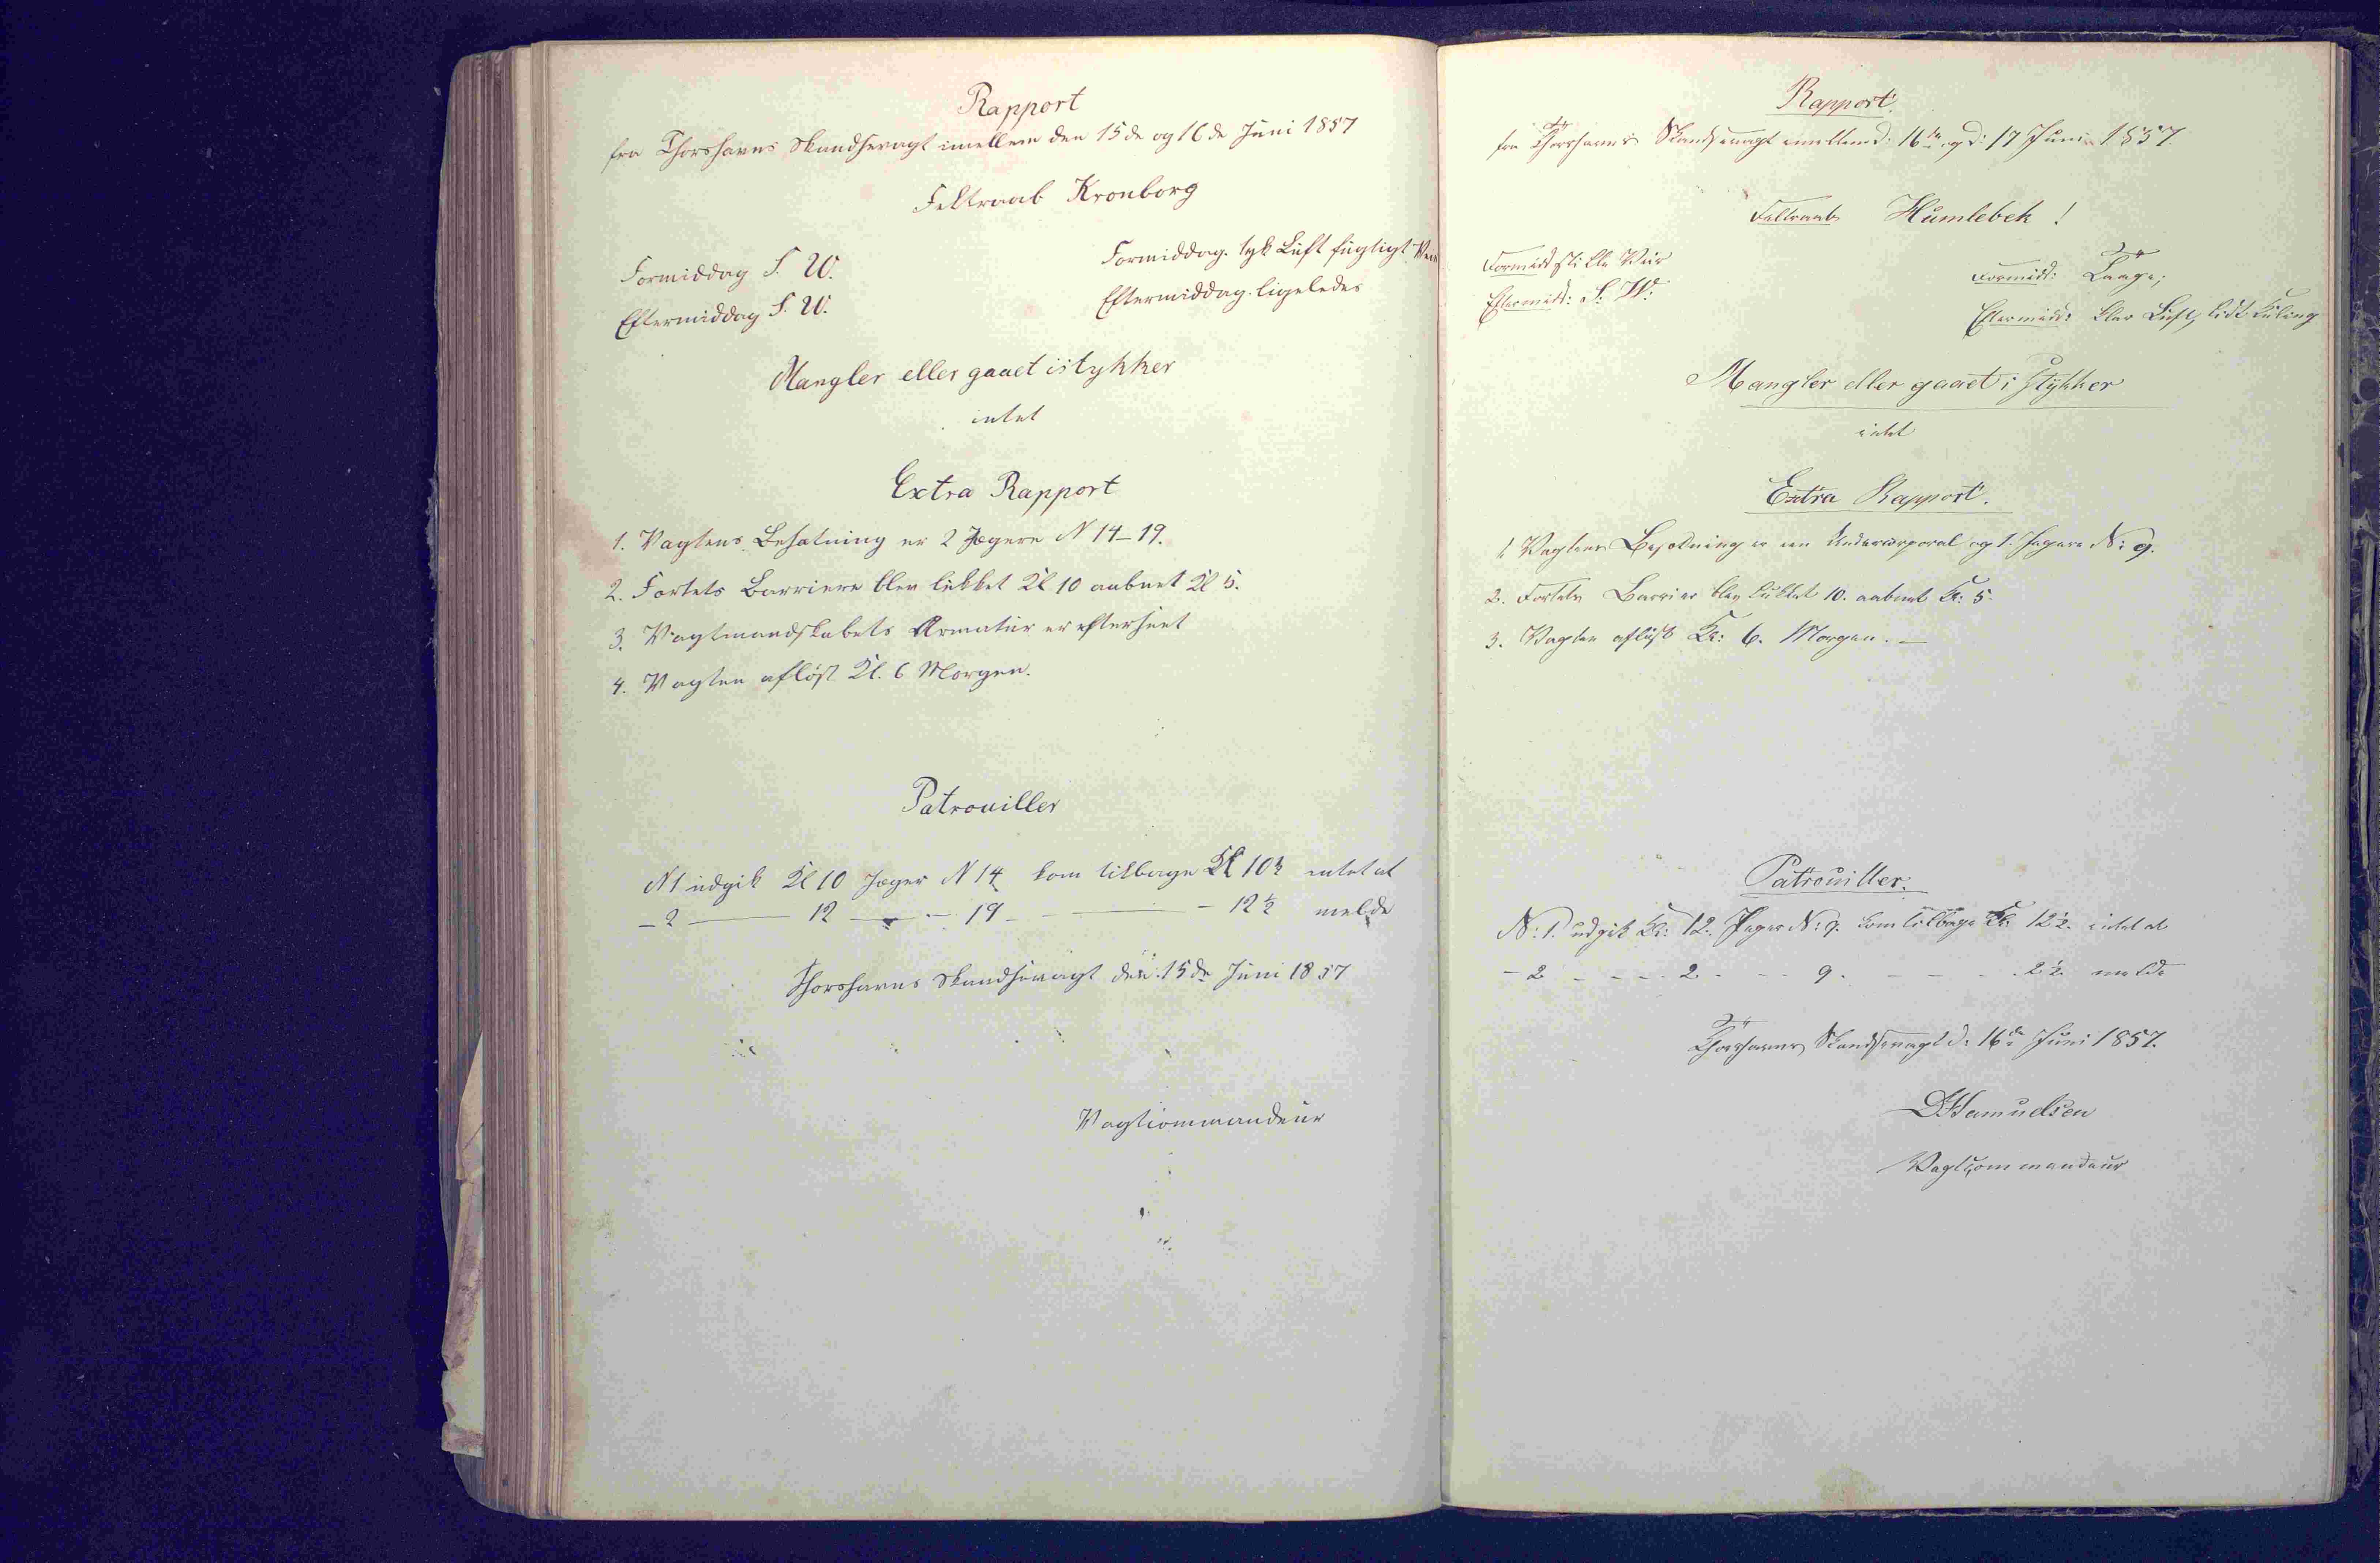 Rapport
fra Thorshavns Skandsevagt imellem den 15de og 16de Juni 1857
Feltraab Kronborg
Formiddag S. W.
Eftermiddag S. W.
Formiddag. tyk Luft fugtigt Veir
Eftermiddag. ligeledes
Mangler eller gaaet istykker
intet
Extra Rapport
1. Vagtens Besætning er 2 Jægere N 14-19.
2. Fortets Barriere blev lukket Kl 10 aabnet Kl 5.
3. Vagtmandskabets Armatur er efterseet
4. Vagten afløst Kl. 6 Morgen.
Patrouiller
N 1 udgik Kl 10 Jæger N 14 kom tilbage Kl 10½ intet at
- 2 — 12 — - 19 - — - 12½ melde
Thorshavns Skandsevagt den 15de Juni 1857
Vagtcommandeur
Rapport
fra Thorshavns Skandsevagt imellem d: 16de og d: 17 Juni 1857.
Feltraab Humlebek !
Formidd stille Veir
Eftermidd: S. W.
Formidd: Taage;
Eftermidd: klar Luft, lidt Kuling
Mangler eller gaaet i Stykker
intet
Extra Rapport.
1. Vagtens Besætning er een Undercorporal og 1. Jægere N: 9.
2. Fortets Barrier blev lukket 10. aabnet Kl: 5.
3. Vagten afløst Kl: 6. Morgen. —
Patrouiller.
N: 1. udgik Kl: 12. Jæger N: 9. kom tilbage Kl: 12½. intet at
- 2 - - - - 2. - - - 9. - - - - 2½. melde
Thorshavns Skandsevagt d: 16de Juni 1857.
DSamuelsen
Vagtcommandeur